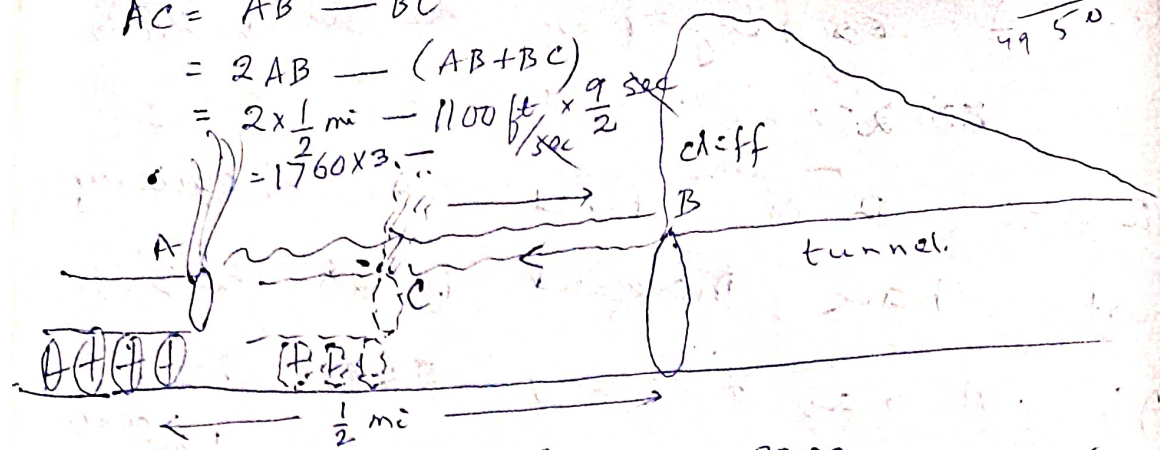 AC = AB — BC
= 2AB — (AB+BC)
= 2×1/2 mi — 1100 ft/sec × 9/2 sec
= 1760×3.
cliff
A
B
C.
tunnel.
1/2 mi
49 50